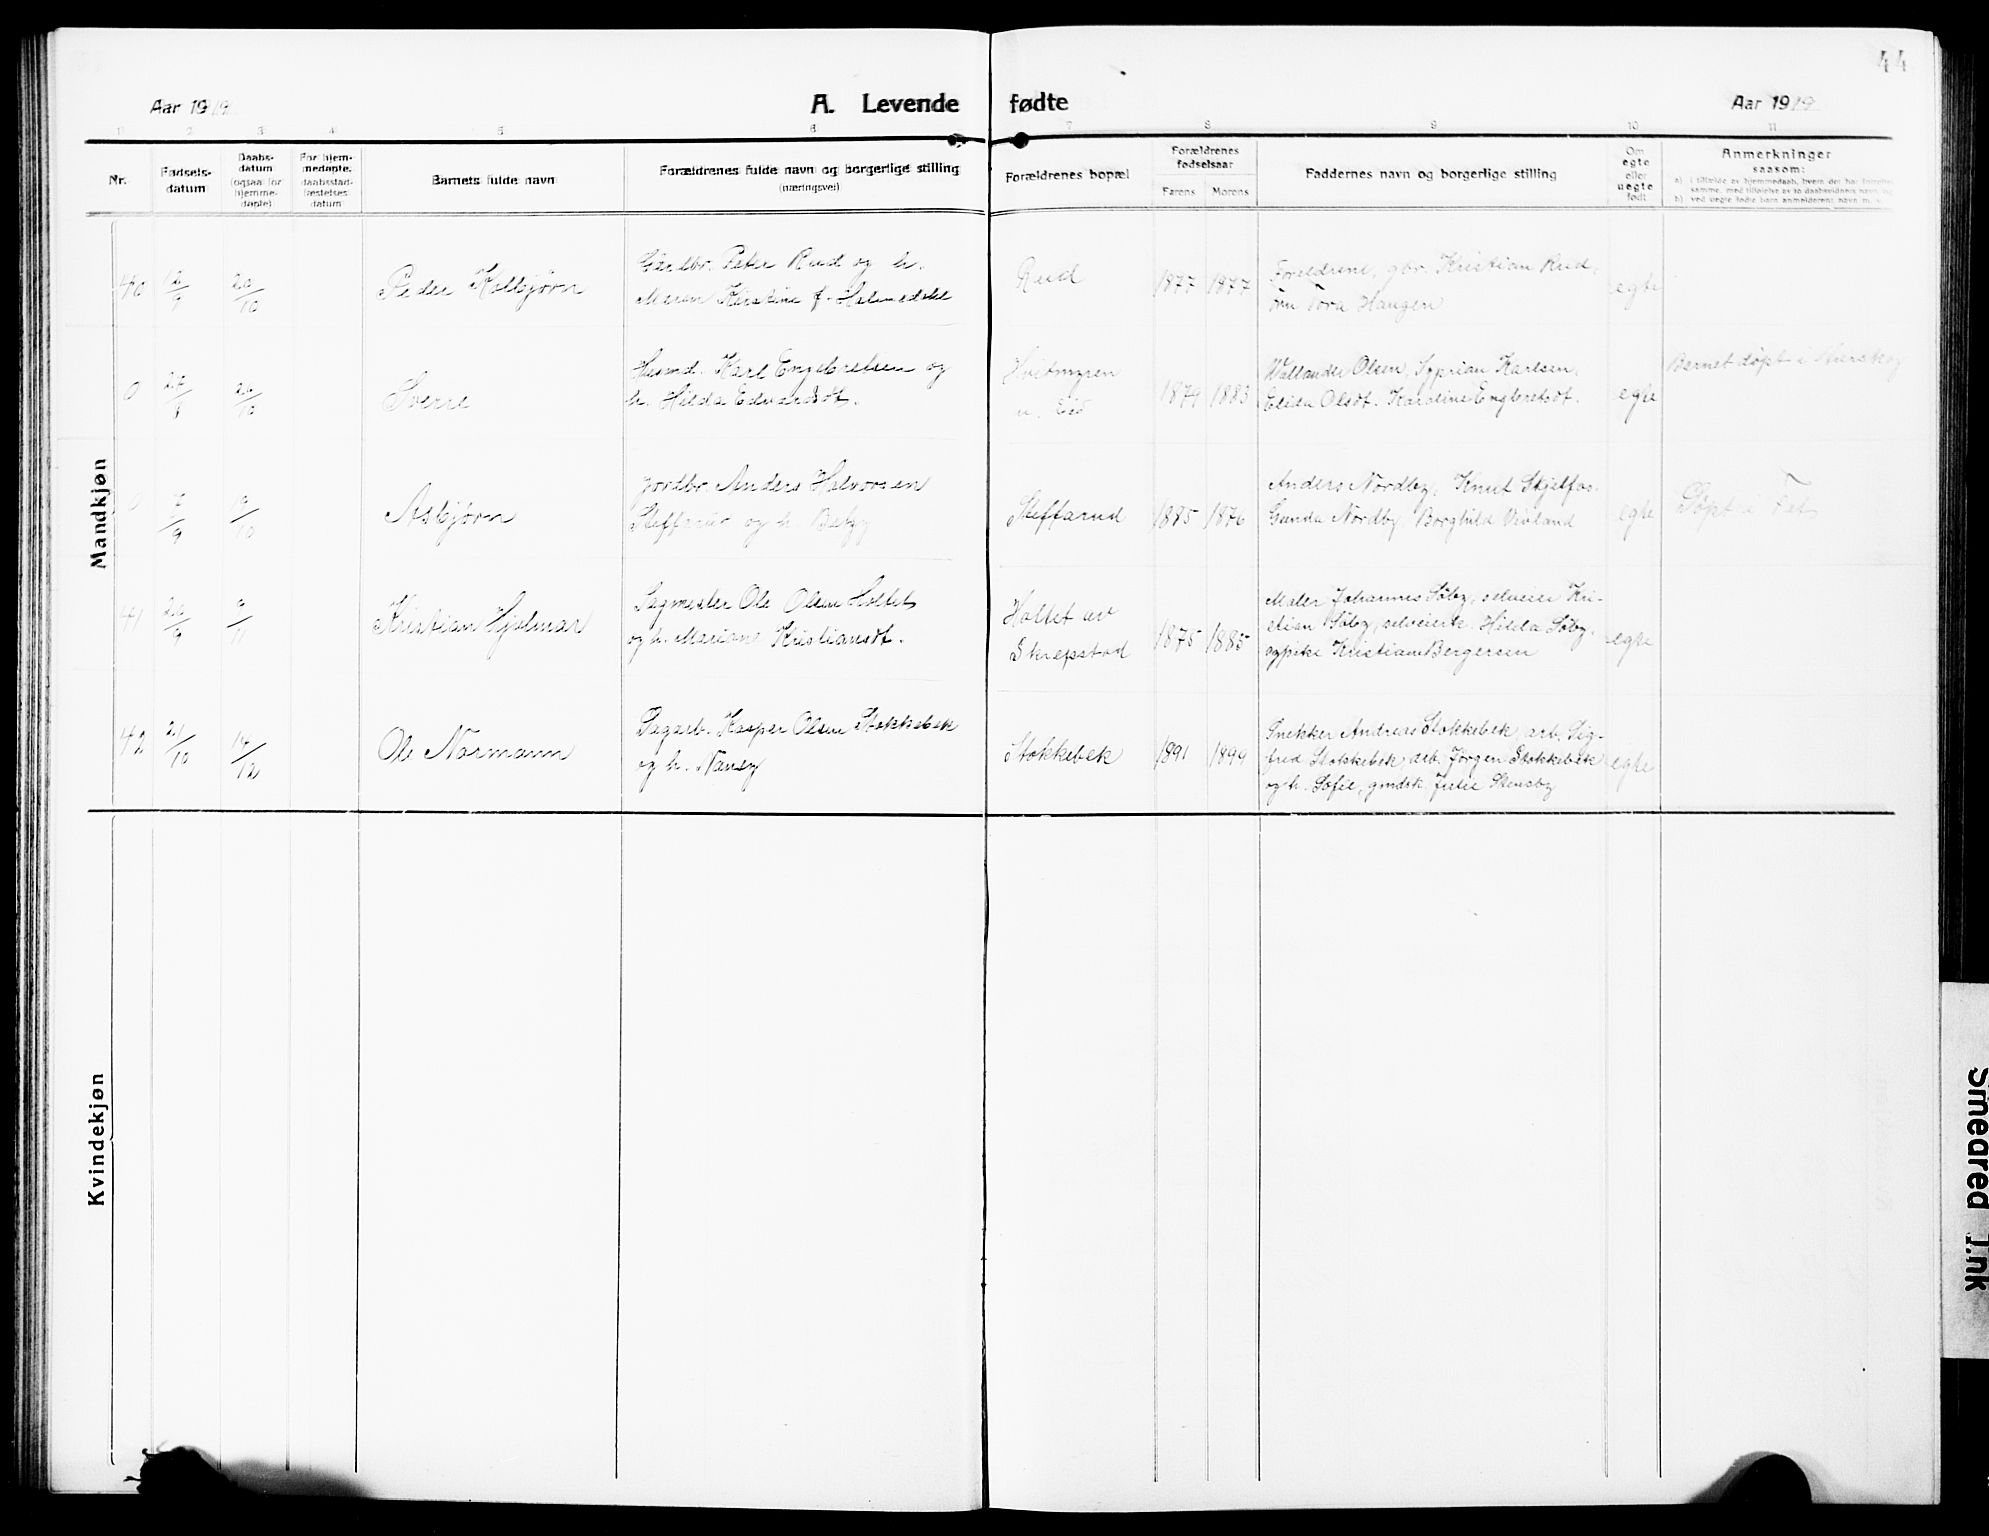 44
Aar 1919
A. Levende fødte
Aar 1919
1 2 3 4 5 6 7 8 9 10 11
Nr.
Fødsels-
datum
Daabs-
datum
(ogsaa for
hjemme-
døpte)
For hjem-
medøpte,
daabsstad-
fæstelses
datum
Barnets fulde navn
Forældrenes fulde navn og borgerlige stilling
(næringsvei)
Forældrenes bopæl
Forældrenes
fødselsaar
Farens Morens
Faddernes navn og borgerlige stilling
Om
egte
eller
uegte
født
Anmerkninger
saasom:
Mandkjøn
40
12/9
26/10
Peder Kolbjørn
Gårdbr. Peter Rud og h.
Maren Kirstine f.
Rud
1877 1877
Foreldrene, gbr. Kristian Rud,
fru Tora Haugen
egte
0
26/10
Sverre
Karl Engebretsen og
h. Hilda Edvardsdt.
1879 1883
Wallander Olsen, Syprian Karlsen,
Olsdt. Karoline Engbretsdt.
egte
Barnet døpt i Aurskog
0
7/9
19/10
Asbjørn
Jordbr. Anders Halvorsen
Steffarud og h. Betzy
Steffarud
1885 1876
Anders Nordby, Knut Skjelfos
Gunda Nordby, Borghild
egte
Døpt i Fet
41
26/9
9/11
Kristian Hjalmar
Sagmester Ole Olsen Holtet
og h. Mariane Kristiansdt.
Holtet av
Skrepstad
1875 1885
Maler Johannes Søby, selveier Kri-
stian Søby, selveierk. Hilda Søby,
og pike Kristiane Bergersen
egte
42
21/10
14/12
Ole Normann
Sagarb. Kasper Olsen Stokkebek
og h. Nancy
Stokkebek
1891 1899
Snekker Andreas Stokkebek, arb. Sig-
fred Stokkebek, arb. Jørgen Stokkebek
og h. Sofie, gmdsk. Julie Stensby
egte
Kvindekjøn
Smeared Ink